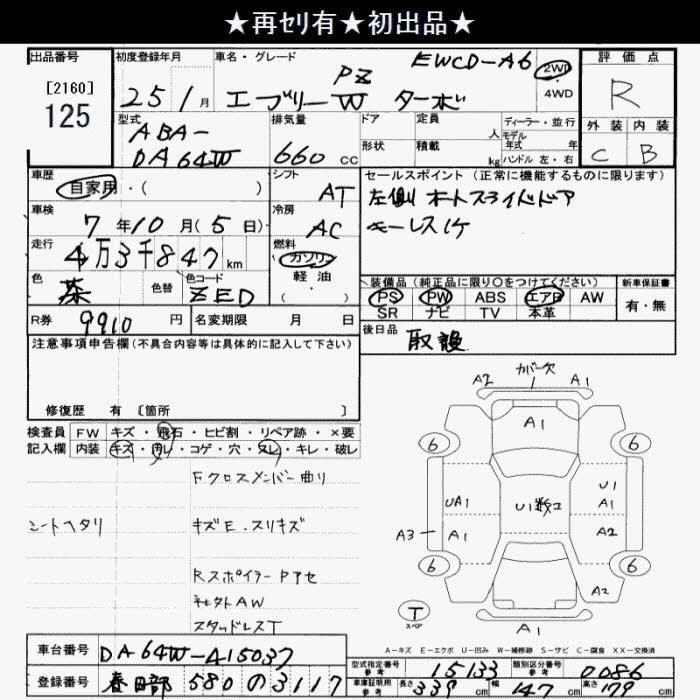 ★再セリ有★初出品★
出品番号 初度登録年月 車名・グレード 評価点
[2160]
125
25 1月
PZ EWCD-A6
エブリーW ターボ
2WD
4WD
R
外装 内装
C B
型式 排気量 ドア 定員 人 ディーラー・並行
モデル
年式 年
形状 積載 kg ハンドル 左・右
ABA-
DA64W
660 CC
車歴 シフト セールスポイント (正常に機能するものに限ります)
自家用・( )
AT
左側オートスライドドア
キーレス1ケ
車検 冷房
7年10月(5日)
AC
走行 燃料
4万3千847km
ガソリン
軽・油
色 色替 色コード
茶 ZED
装備品 (純正品に限り○をつけてください) 新車保証書
PS PW ABS エアB AW 有・無
SR ナビ TV 本革
R券 9910円 名変期限 月 日
後日品 取説
注意事項申告欄(不具合内容等は具体的に記入して下さい)
修復歴 有 [箇所 ]
検査員 FW キズ・飛石・ヒビ割・リペア跡・×要
記入欄 内装 キズ・汚レ・コゲ・穴・スレ・キレ・破レ
Fクロスメンバー曲り
シートヘタリ キズE.スリキズ
Rスポイラー Pアセ
社外AW
スタッドレスT
カバー欠
A2 A1
A1
6 6
UA1 U1数コ U1
A1
A3 A1 A2
6 6
A2
T
スペア
A1
A-キズ E-エクボ U-凹み W-補修跡 S-サビ C-腐食 XX-交換済
車台番号 DA64W-415037
型式指定番号 参考 15133 類別区分番号 参考 0086
登録番号 春日部 580 の 3117
車庫証明用 参考 長さ 339cm 幅 147cm 高さ 179cm